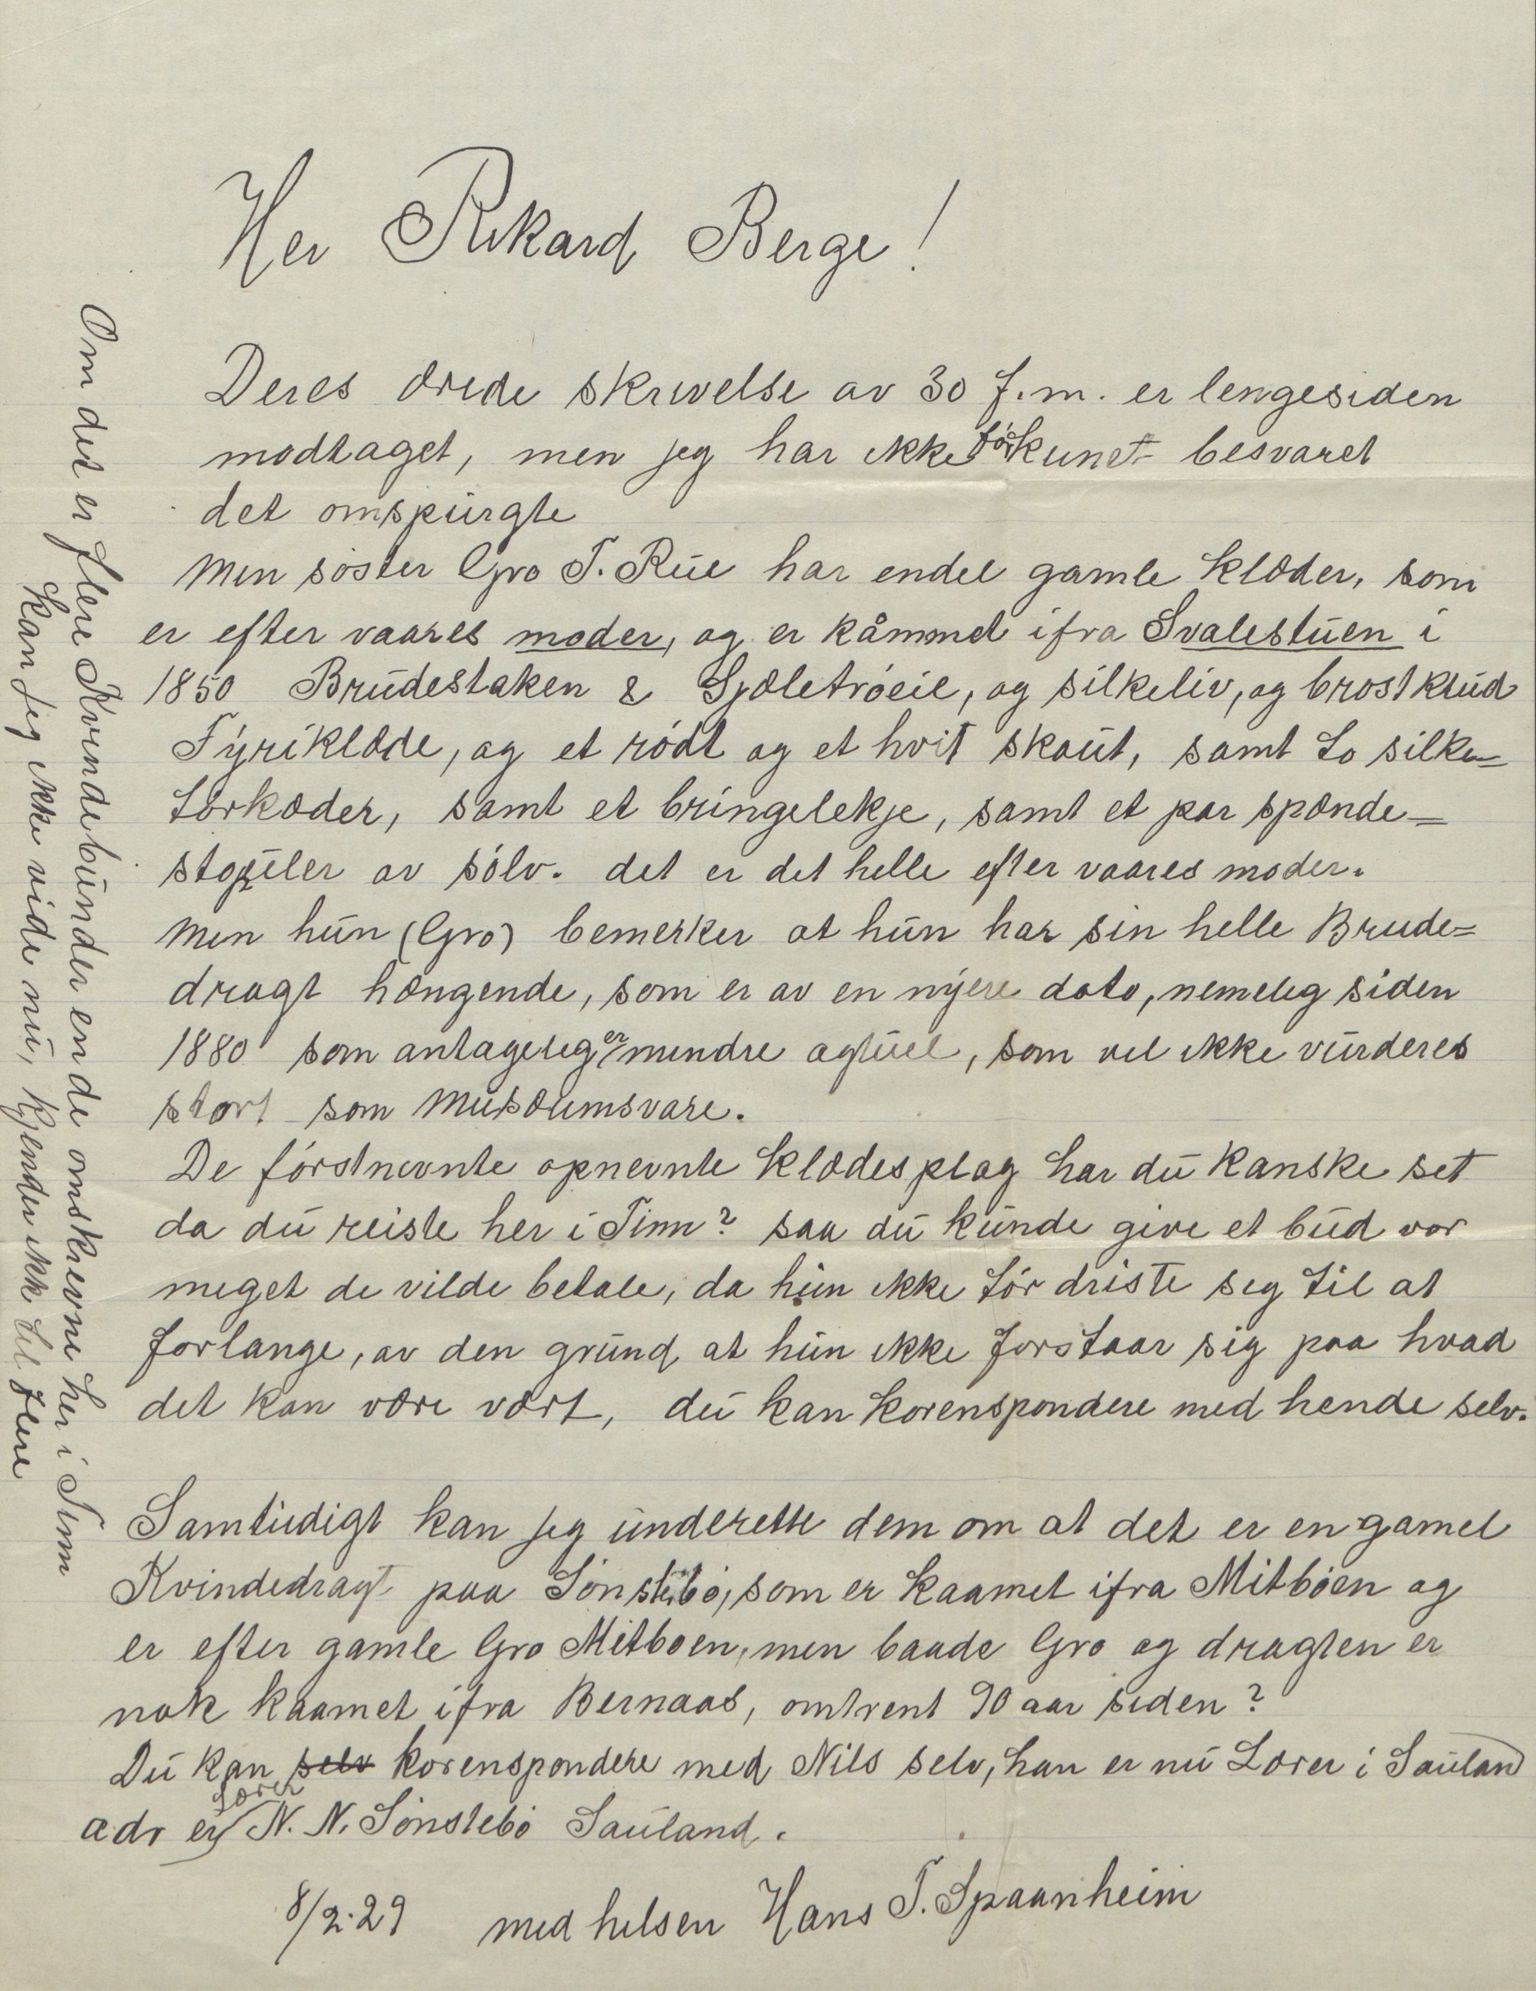 Her Rikard Berge!
Deres ærede skrivelse av 30 f.m. er lengesiden
modtaget, men jeg har ikke før kunet besvaret
det omspurgte
Min søster Gro T. Rue har endel gamle klæder, som
er efter vaares moder, og er kåmmet ifra Svalestuen i
1850 Brudestaken & Sjæletrøeie, og silkeliv, og brostklud
Fyriklæde, og et rødt og et hvit skaut, samt to silke=
tørkæder, samt et bringelekje, samt et par spænde=
støpuler av sølv. det er det helle efter vaares moder.
Men hun (Gro) bemerker at hun har sin helle Brude=
dragt hængende, som er av en nyere dato, nemelig siden
1880 som antagelig er mindre agtuel, som vel ikke vurderes
stort som Musæumsvare.
De førstnevnte opnevnte klædesplag har du kanske set
da du reiste her i Tinn? saa du kunde give et bud vor
meget de vilde betale, da hun ikke tør driste seg til at
forlange, av den grund at hun ikke forstaar sig paa hvad
det kan være vært, du kan korenspondere med hende selv.
Samtidigt kan jeg underette dem om at det er en gamel
Kvindedragt paa Sønstebø, som er kaamet ifra Mitbøen og
er efter gamle Gro Mitboen, men baade Gro og dragten er
nok kaamet ifra Bernaas, omtrent 90 aar siden?
Du kan selv korenspondere med Nils selv, han er nu Lærer i Sauland
adr er Lærer N. N. Sønstebø Sauland.
8/2-29 med helsen Hans T. Spaanheim
Om det er flere Kvindebunder en de onskrevne her i Tinn
kan jeg ikke vide nu, kjender ikke til flere